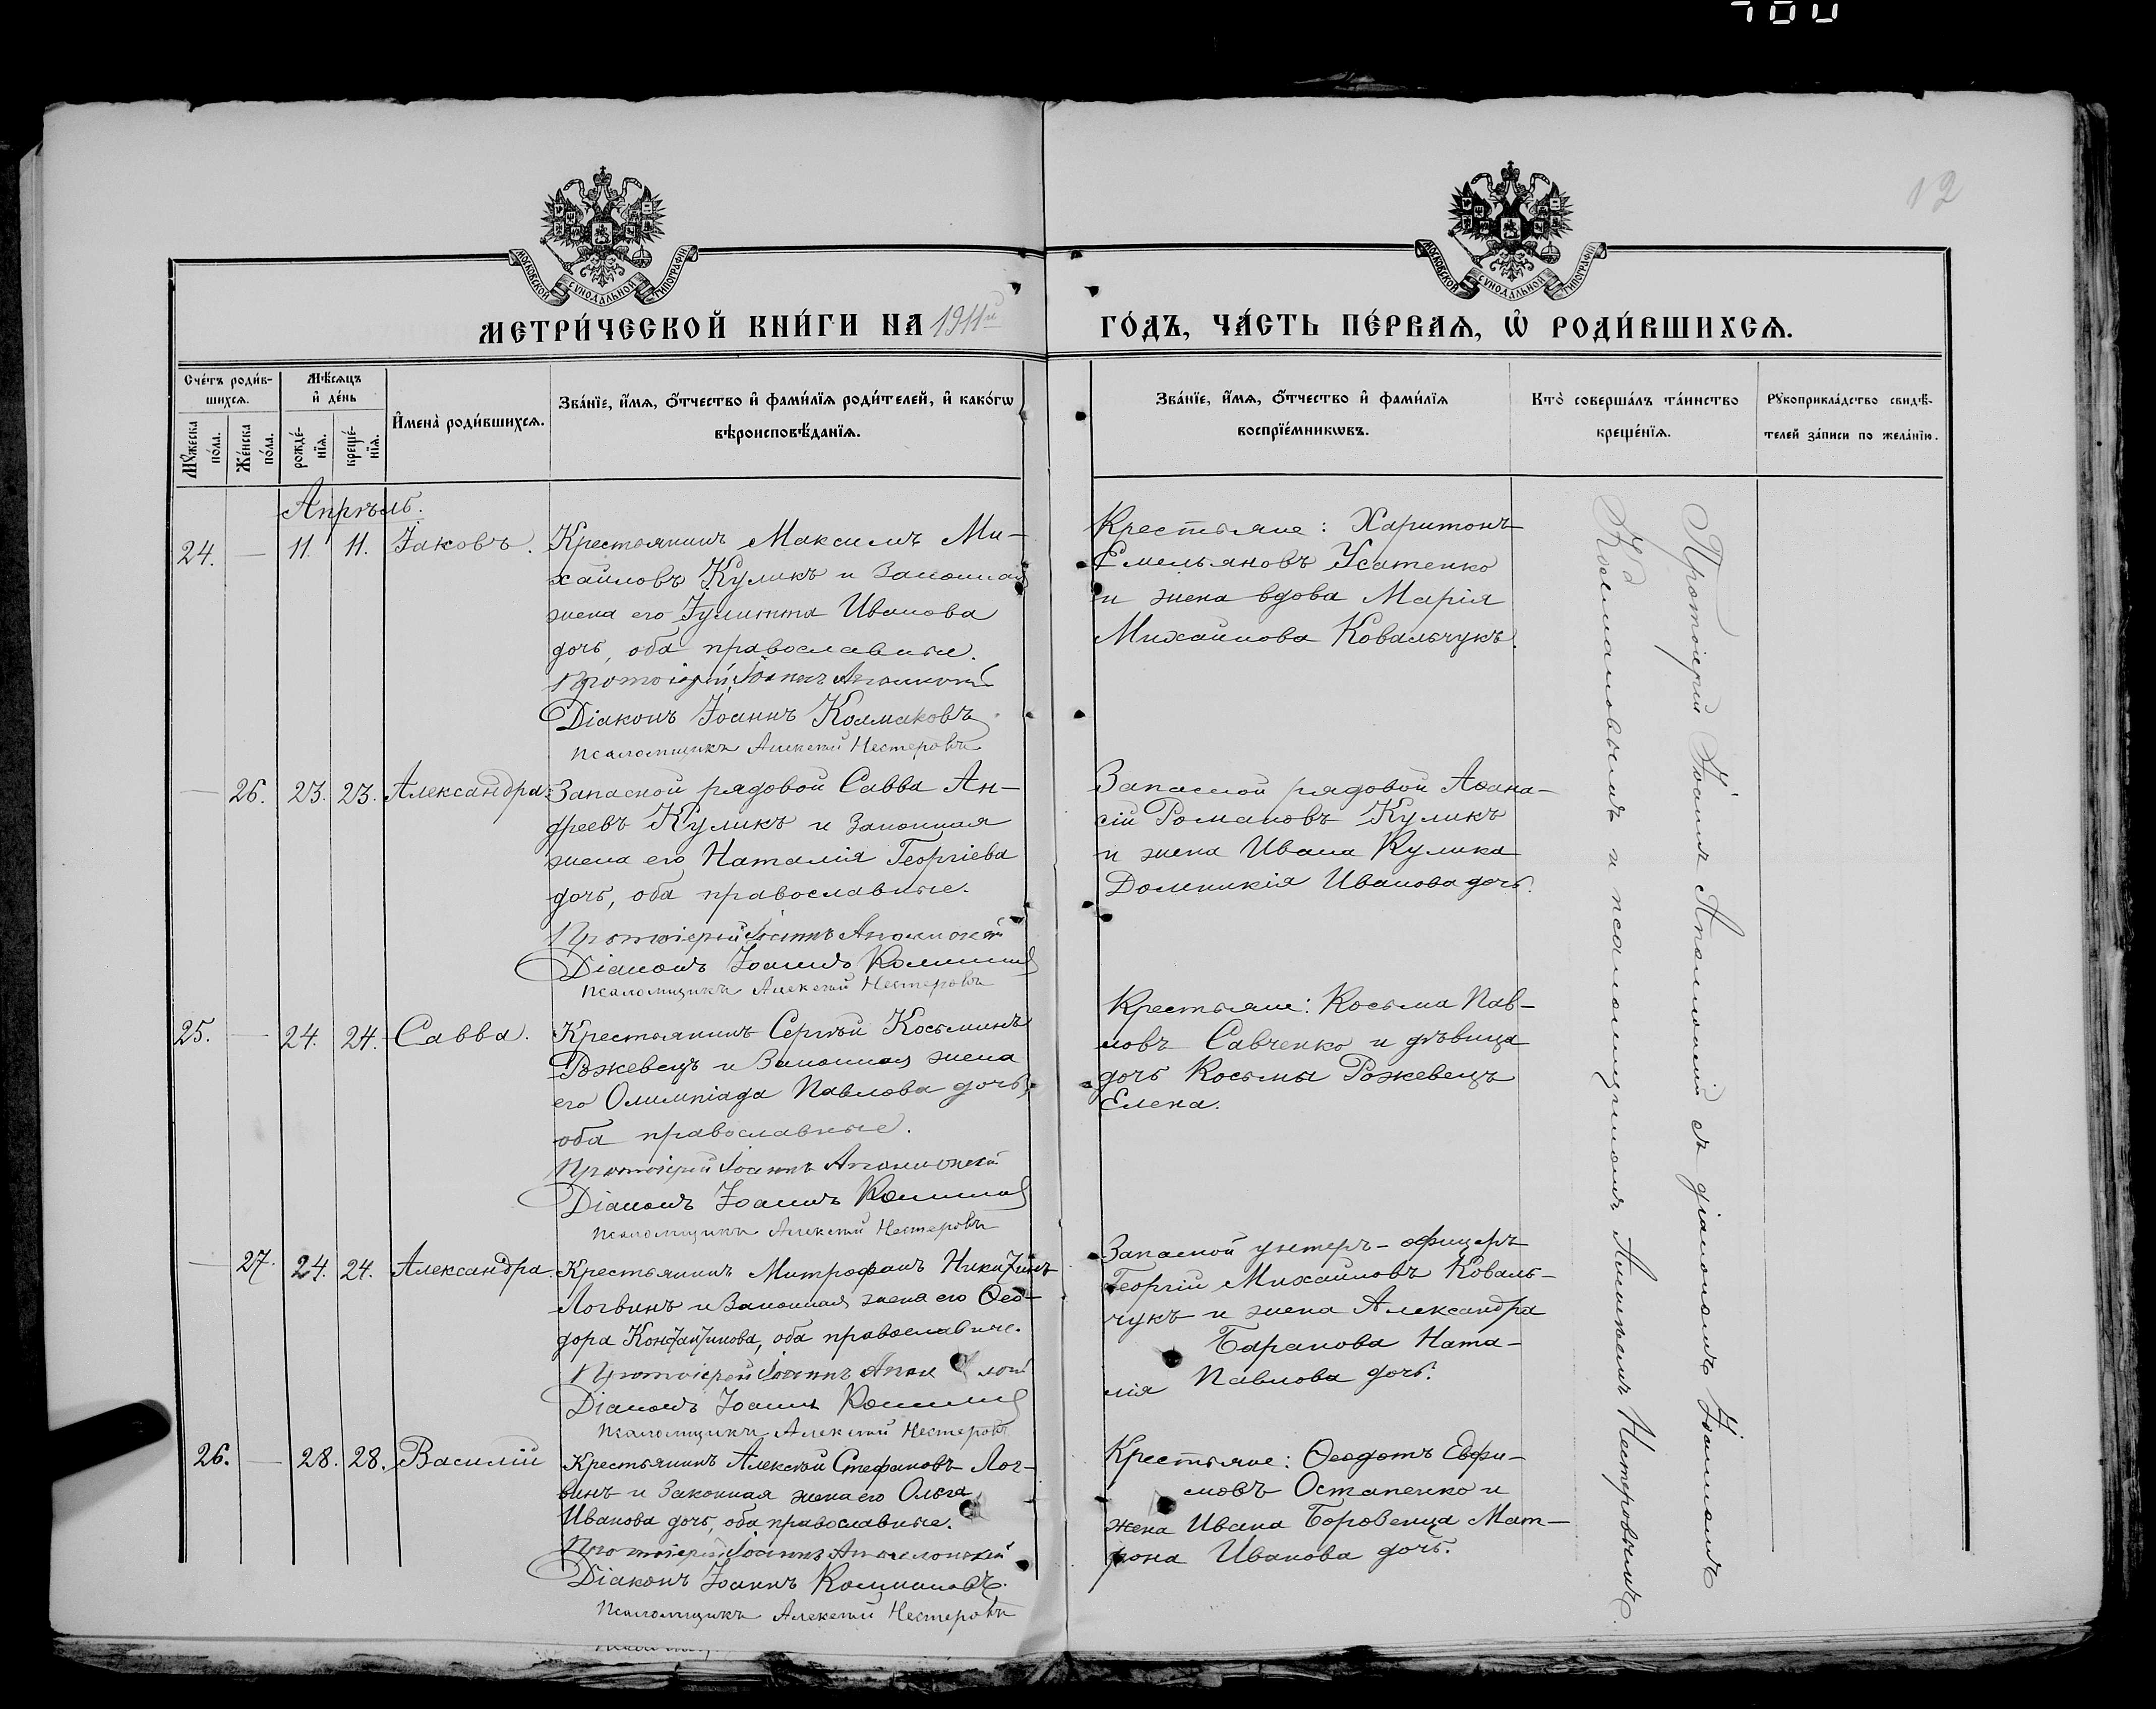 МОСКОВСКОЙ СѴНОДАЛЬНОЙ ТИПОГРАФІИ
МОСКОВСКОЙ СѴНОДАЛЬНОЙ ТИПОГРАФІИ
12
МЕТРИ́ЧЕСКОЙ КНИ́ГИ НА 1911й
ГО́ДЪ, ЧА́СТЬ ПЕ́РВАѦ, Ѿ РОДИ́ВШИХСѦ.
Сче́тъ роди́в-
шихсѧ.
Мꙋ́жеска по́ла.
Же́нска по́ла.
Мѣ́сѧцъ
и҆ де́нь
рожде́-нїѧ.
креще́-нїѧ.
И҆мена̀ роди́вшихсѧ.
Зва́нїе, и҆́мѧ, ѻ҆́тчество и҆ фами́лїѧ роди́телей, и҆ како́гѡ
вѣроисповѣ́данїѧ.
Зва́нїе, и҆́мѧ, ѻ҆́тчество и҆ фами́лїѧ
воспрїе́мникѡвъ.
Кто̀ соверша́лъ та́инство
креще́нїѧ.
Рꙋкоприкла́дство свидѣ́-
телей за́писи по жела́нїю.
Апрѣль.
24. — 11. 11. Іаковъ.
Крестьянинъ Максимъ Ми-
хаиловъ Куликъ и законная
жена его Іулитта Иванова
дочь, оба православные.
Протоіерей Іоаннъ
Діаконъ Іоаннъ Колмаковъ
псаломщикъ Алексѣй Нестеровъ
Крестьяне: Харитонъ
Емельяновъ Усатенко
и жена вдова Марія
Михаилова Ковальчукъ.
— 26. 23. 23. Александра.
Запасной рядовой Савва Ан-
дреевъ Куликъ и законная
жена его Наталія Георгіева
дочь, оба православные.
Протоіерей Іоаннъ
Діаконъ Іоаннъ Колмаковъ
псаломщикъ Алексѣй Нестеровъ
Запасной рядовой Аѳана-
сій Романовъ Куликъ
и жена Ивана Кулика
Домникія Иванова дочь.
25. — 24. 24. Савва.
Крестьянинъ Сергѣй Косьминъ
Рожевецъ и законная жена
его Олимпіада Павлова дочь,
оба православные.
Протоіерей Іоаннъ
Діаконъ Іоаннъ Колмаковъ
псаломщикъ Алексѣй Нестеровъ
Крестьяне: Косьма Пав-
ловъ Савченко и дѣвица
дочь Косьмы Рожевецъ
Елена.
— 27. 24. 24. Александра.
Крестьянинъ Митрофанъ Никитинъ
Логвинъ и законная жена его Ѳео-
дора Константинова, оба православные.
Протоіерей Іоаннъ
Діаконъ Іоаннъ Колмаковъ
псаломщикъ Алексѣй Нестеровъ
Запасной унтеръ-офицеръ
Георгій Михаиловъ Коваль-
чукъ и жена Александра
Баранова Ната-
лія Павлова дочь.
26. — 28. 28. Василій
Крестьянинъ Алексѣй Стефановъ Лог-
винъ и законная жена его Ольга
Иванова дочь, оба православные.
Протоіерей Іоаннъ
Діаконъ Іоаннъ Колмаковъ.
псаломщикъ Алексѣй Нестеровъ
Крестьяне: Ѳеодотъ Евфи-
мовъ Остапенко и
жена Ивана Боровенца Мат-
рона Иванова дочь.
Протоіерей Іоаннъ съ діакономъ Іоанномъ
Колмаковымъ и псаломщикомъ Алексѣемъ Нестеровымъ